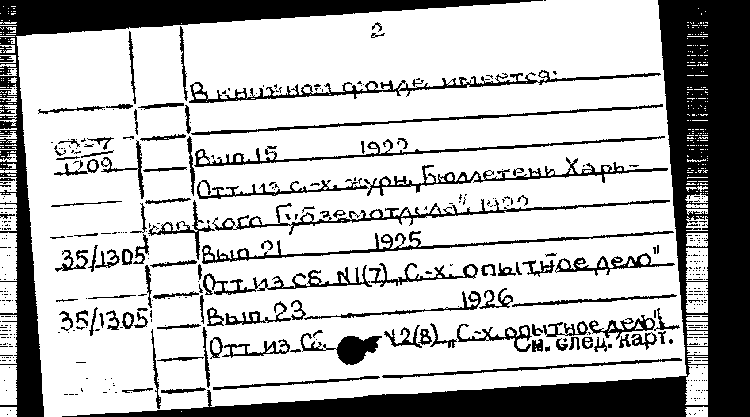 2
В книжном фонде имеется:
62-7
1209
Вып. 15 1922.
Отт. из с.-х. журн. „Бюллетень Харь-
ковского Губземотдела", 1922
35/1305 Вып. 21 1925
Отт. из сб. N1(7) „С.-х. опытное дело"
35/1305 Вып. 23 1926
Отт. из Сб. N2(8) „С.-х. опытное дело".
См. след. карт.